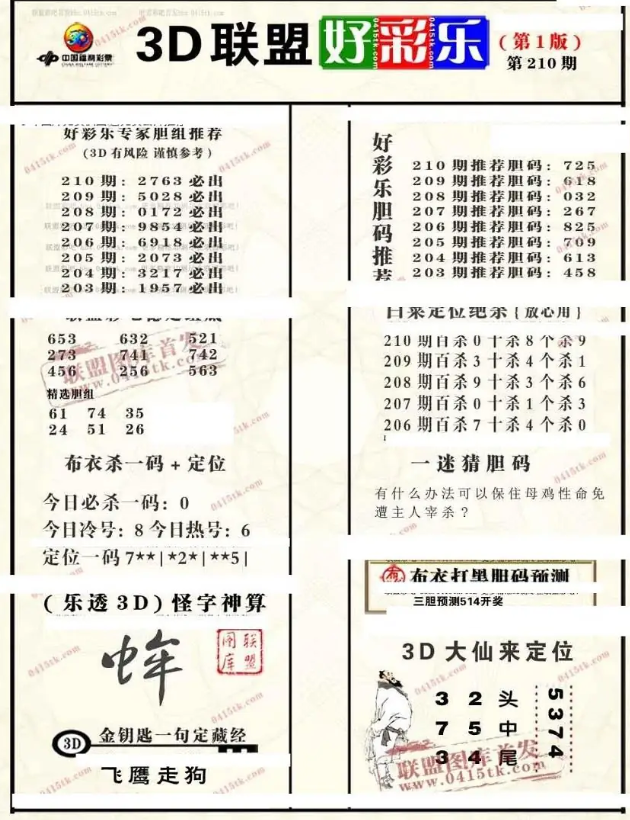 中国福利彩票
3D联盟好彩乐
(第1版)
第210期
好彩乐专家胆组推荐
(3D有风险 谨慎参考)
210期: 2763必出
209期: 5028必出
208期: 0172必出
207期: 9854必出
206期: 6918必出
205期: 2073必出
204期: 3217必出
203期: 1957必出
653 632 521
273 741 742
456 256 563
精选胆组
61 74 35
24 51 26
布衣杀一码+定位
今日必杀一码: 0
今日冷号: 8 今日热号: 6
定位一码 7**|*2*|**5|
(乐透3D)怪字神算
联盟图库
3D 金钥匙一句定藏经
飞鹰走狗
好彩乐胆码推荐
210期推荐胆码: 725
209期推荐胆码: 618
208期推荐胆码: 032
207期推荐胆码: 267
206期推荐胆码: 825
205期推荐胆码: 709
204期推荐胆码: 613
203期推荐胆码: 458
白菜定位绝杀{放心用}
210期百杀0十杀8个杀9
209期百杀3十杀4个杀1
208期百杀9十杀3个杀6
207期百杀0十杀1个杀3
206期百杀7十杀4个杀0
一迷猜胆码
有什么办法可以保住母鸡性命免
遭主人宰杀?
布衣打黑胆码预测
三胆预测514开奖
3D大仙来定位
3 2 头
7 5 中
3 4 尾
5374
联盟图库首发
www.0415tk.com